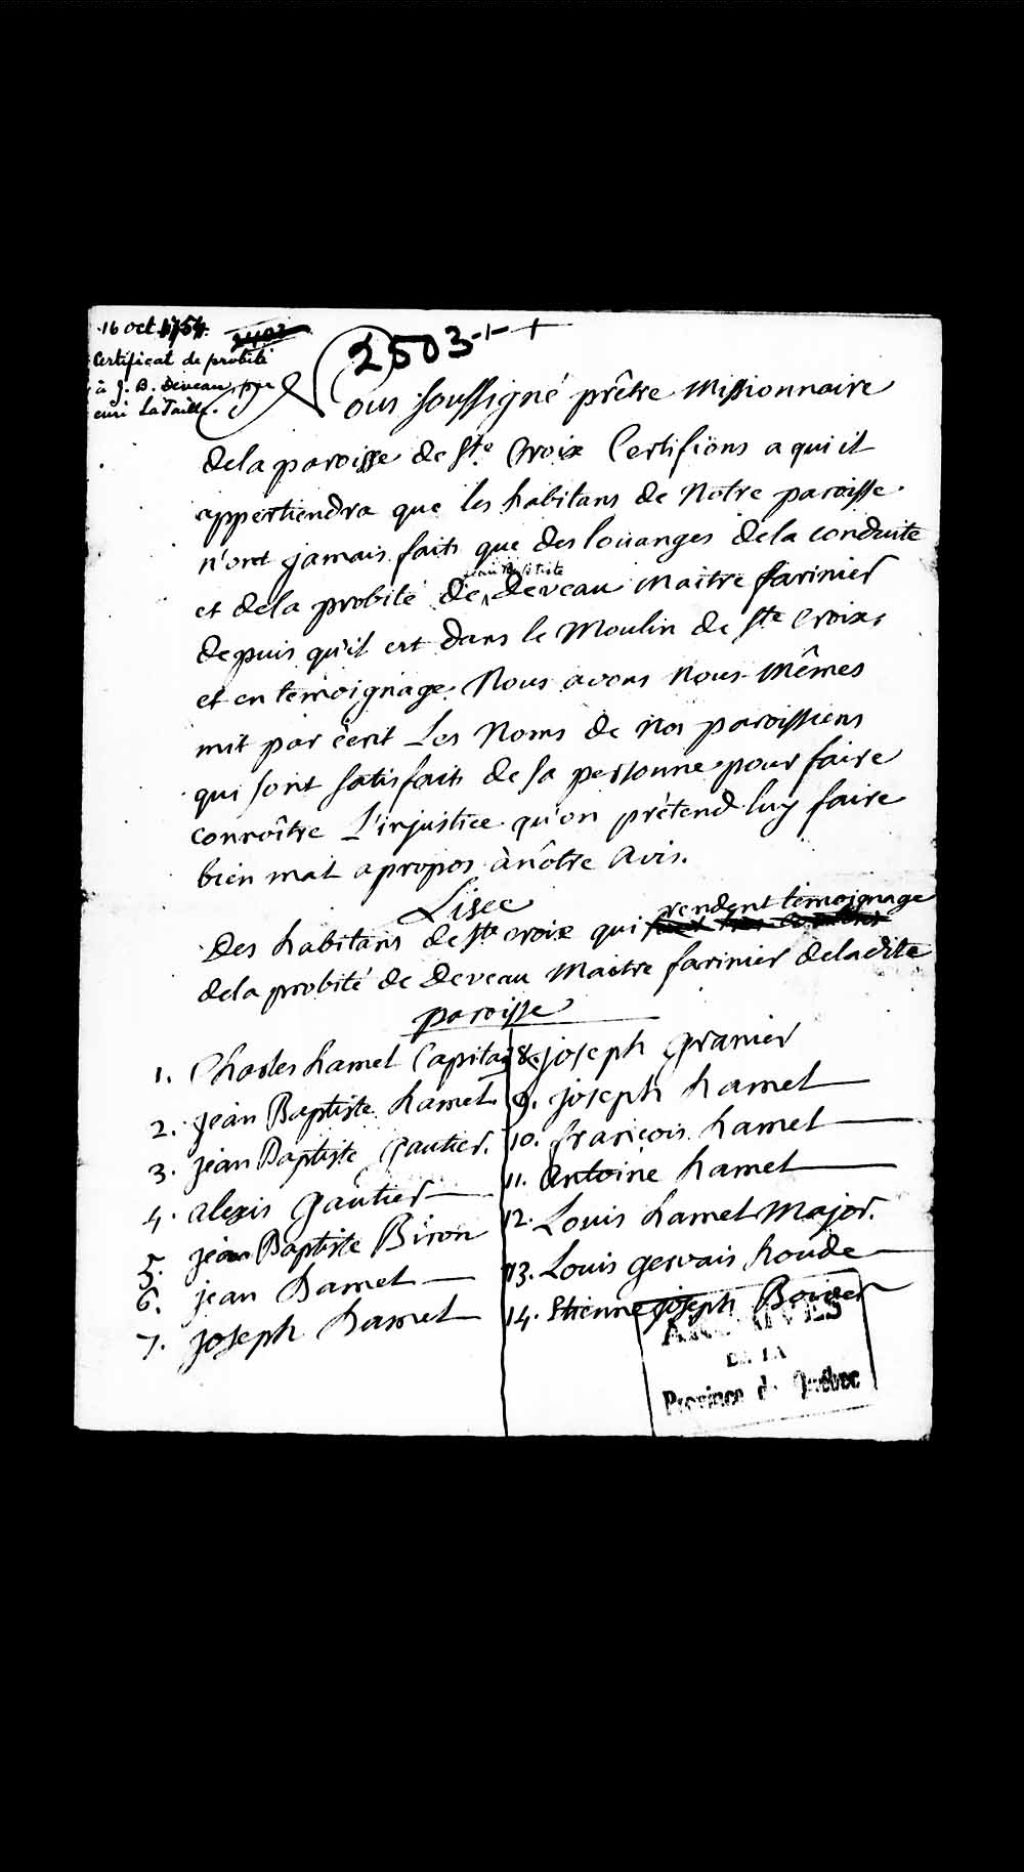 16 oct 1754.
2503
Certificat de probité
à J. B. Deveau, par
curé La Taille.
Nous soussigné prêtre Missionnaire
dela paroisse de Ste Croix Certifions a qui it
appertiendra que les habitans de Notre paroisse
n'ont jamais faits que des loüanges dela conduite
et dela probité de jean Baptiste deveau Maitre farinier
depuis qu'il est dans le Moulin de Ste Croix,
et en temoignage Nous avons Nous Mêmes
mit par écrit Les Noms de Nos paroissiens
qui sont satisfaits de sa personne pour faire
connoître L'injustice qu'on prétend luy faire
bien mal apropos à nôtre Avis.
Lisee
Des habitans de Ste croix qui rendent temoignage
dela probité de Deveau Maitre farinier deladite
paroisse
1. Charles hamel Capitai
2. jean Baptiste hamel
3. jean Baptiste Gautier.
4. alexis Gautier
5. jean Baptiste Biron
6. jean hamel
7. joseph hamel
8. joseph Granier
9. joseph hamel
10. françois hamel
11. antoine hamel
12. Louis hamel Major.
13. Louis gervais houde
14. Etienne joseph Boivier
ARCHIVES
DE LA
Province de Québec